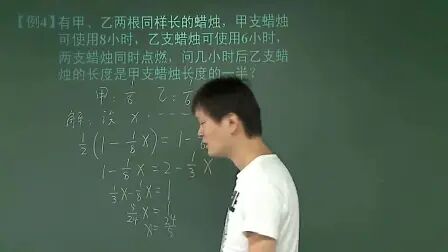 【例4】有甲、乙两根同样长的蜡烛，甲支蜡烛
可使用8小时，乙支蜡烛可使用6小时，
两支蜡烛同时点燃，问几小时后乙支蜡
烛的长度是甲支蜡烛长度的一半？
甲：1/8 乙：1/6
解：设 x
1/2(1-1/8x)=1-
1-1/8x=2-1/3x
1/3x-1/8x=1
5/24x=1
x=24/5